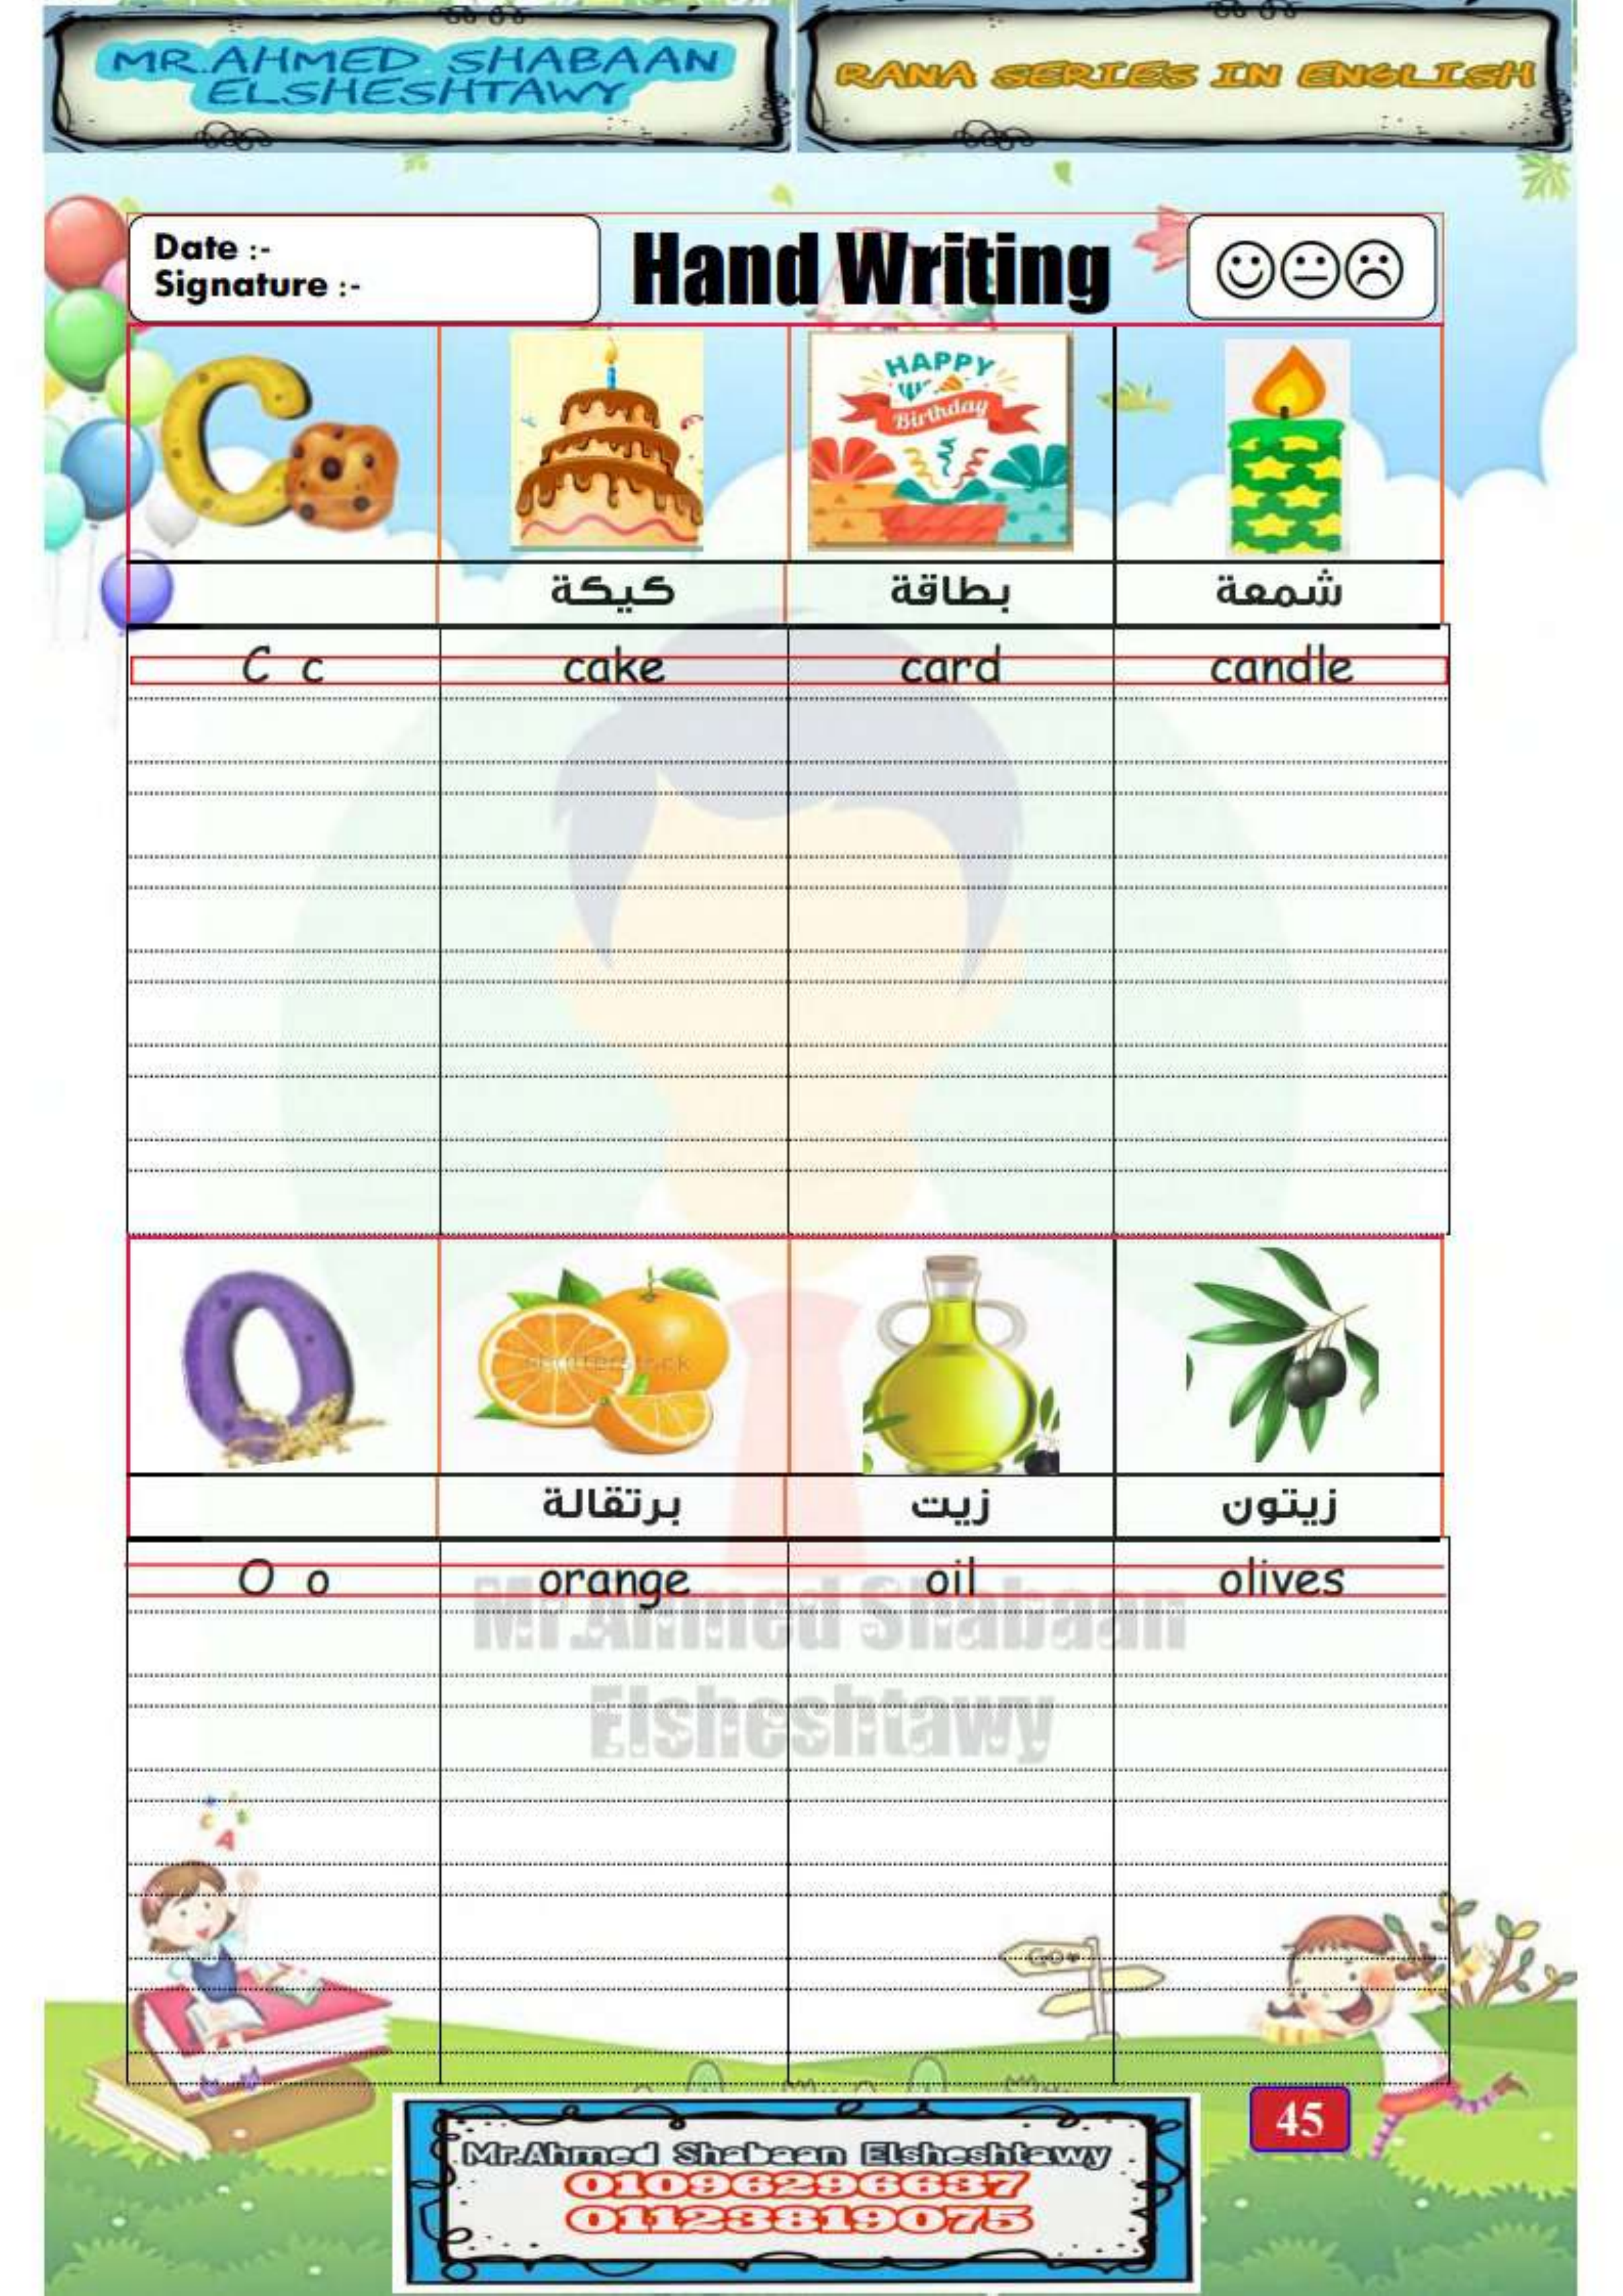 MR.AHMED SHABAAN
ELSHESHTAWY
RANA SERIES IN ENGLISH
Date :-
Signature :-
Hand Writing
C
HAPPY
Birthday
كيكة
بطاقة
شمعة
C c
cake
card
candle
O
shutterstock
برتقالة
زيت
زيتون
O o
orange
oil
olives
Mr.Ahmed Shabaan
Elsheshtawy
A
Go
45
Mr.Ahmed Shabaan Elsheshtawy
01096296637
01123819075